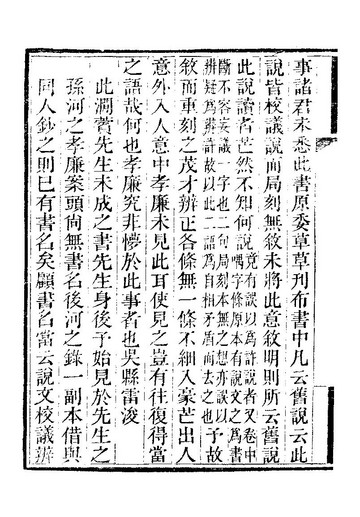 事諸君未悉此書原委草草刊布書中凡云舊說云此
說皆校議說而局刻無敘未將此意敘明則所云舊說
此說讀者茫然不知何說竟有誤以爲許說者又卷中喁字條原本有說文之爲書
斷不容妄議一字也二句局刻本無之想亦誤以辨疑爲辨許故以此二語爲自相矛盾而去之也予故
敘而重刻之茂才辨正各條無一條不細入豪芒出人
意外入人意中孝廉未見此耳使見之豈有往復得當
之語哉何也孝廉究非懵於此事者也吳縣雷浚
此澗薲先生未成之書先生身後予始見於先生之
孫河之孝廉案頭尚無書名後河之錄一副本借與
同人鈔之則巳有書名矣顧書名當云說文校議辨